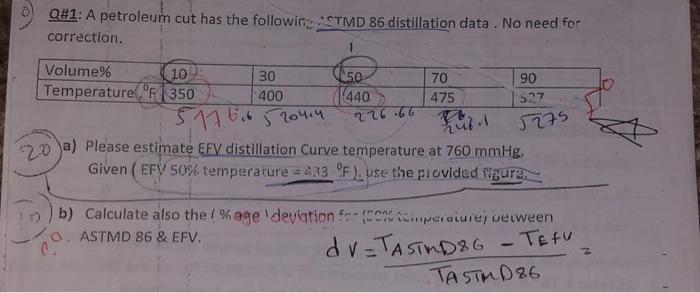 Q#1: A petroleum cut has the following ASTMD 86 distillation data. No need for
correction.
Volume% 10 30 50 70 90
Temperature, ºF 350 400 440 475 527
176.6 204.4 226.66 246.1 275
20 a) Please estimate EFV distillation Curve temperature at 760 mmHg.
Given (EFV 50% temperature = 433 ºF). use the provided figure.
b) Calculate also the (%age) deviation for (50% temperature) between
ASTMD 86 & EFV.
dV = TASTMD86 - TEFV =
TASTMD86